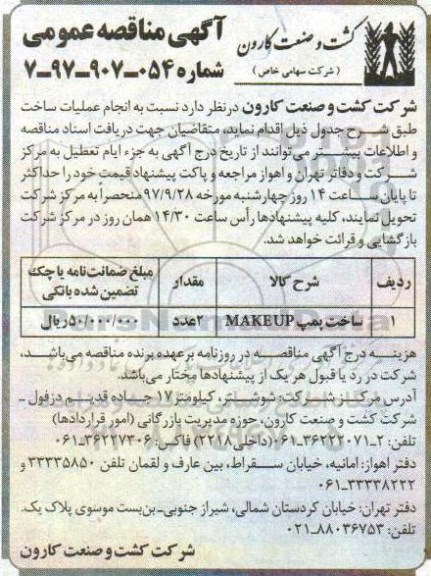 آگهی مناقصه عمومی
شماره ۰۵۴-۹۰۷-۹۷-۷
کشت و صنعت کارون
(شرکت سهامی خاص)
شرکت کشت و صنعت کارون در نظر دارد نسبت به انجام عملیات ساخت
طبق شرح جدول ذیل اقدام نماید، متقاضیان جهت دریافت اسناد مناقصه
و اطلاعات بیشتر می‌توانند از تاریخ درج آگهی به جزء ایام تعطیل به مرکز
شرکت و دفاتر تهران و اهواز مراجعه و پاکت پیشنهاد قیمت خود را حداکثر
تا پایان ساعت ۱۴ روز چهارشنبه مورخه ۹۷/۹/۲۸ منحصراً به مرکز شرکت
تحویل نمایند، کلیه پیشنهادها رأس ساعت ۱۴/۳۰ همان روز در مرکز شرکت
بازگشایی و قرائت خواهد شد.
ردیف شرح کالا مقدار مبلغ ضمانت‌نامه یا چک تضمین شده بانکی
۱ ساخت پمپ MAKEUP ۲عدد ۵۰/۰۰۰/۰۰۰ریال
هزینه درج آگهی مناقصه در روزنامه برعهده برنده مناقصه می‌باشد،
شرکت در رد یا قبول هر یک از پیشنهادها مختار می‌باشد.
آدرس مرکز شرکت: شوشتر، کیلومتر۱۷ جاده قدیم دزفول ـ
شرکت کشت و صنعت کارون، حوزه مدیریت بازرگانی (امور قراردادها)
تلفن: ۲-۳۶۲۲۲۰۷۱-۰۶۱(داخلی۲۲۱۸) فاکس: ۳۶۲۲۷۳۰۶-۰۶۱
دفتر اهواز: امانیه، خیابان سقراط، بین عارف و لقمان تلفن ۳۳۳۳۵۸۵۰ و
۳۳۳۳۸۲۲۲-۰۶۱
دفتر تهران: خیابان کردستان شمالی، شیراز جنوبی-بن‌بست موسوی پلاک یک.
تلفن: ۸۸۰۳۶۷۵۳-۰۲۱
شرکت کشت و صنعت کارون